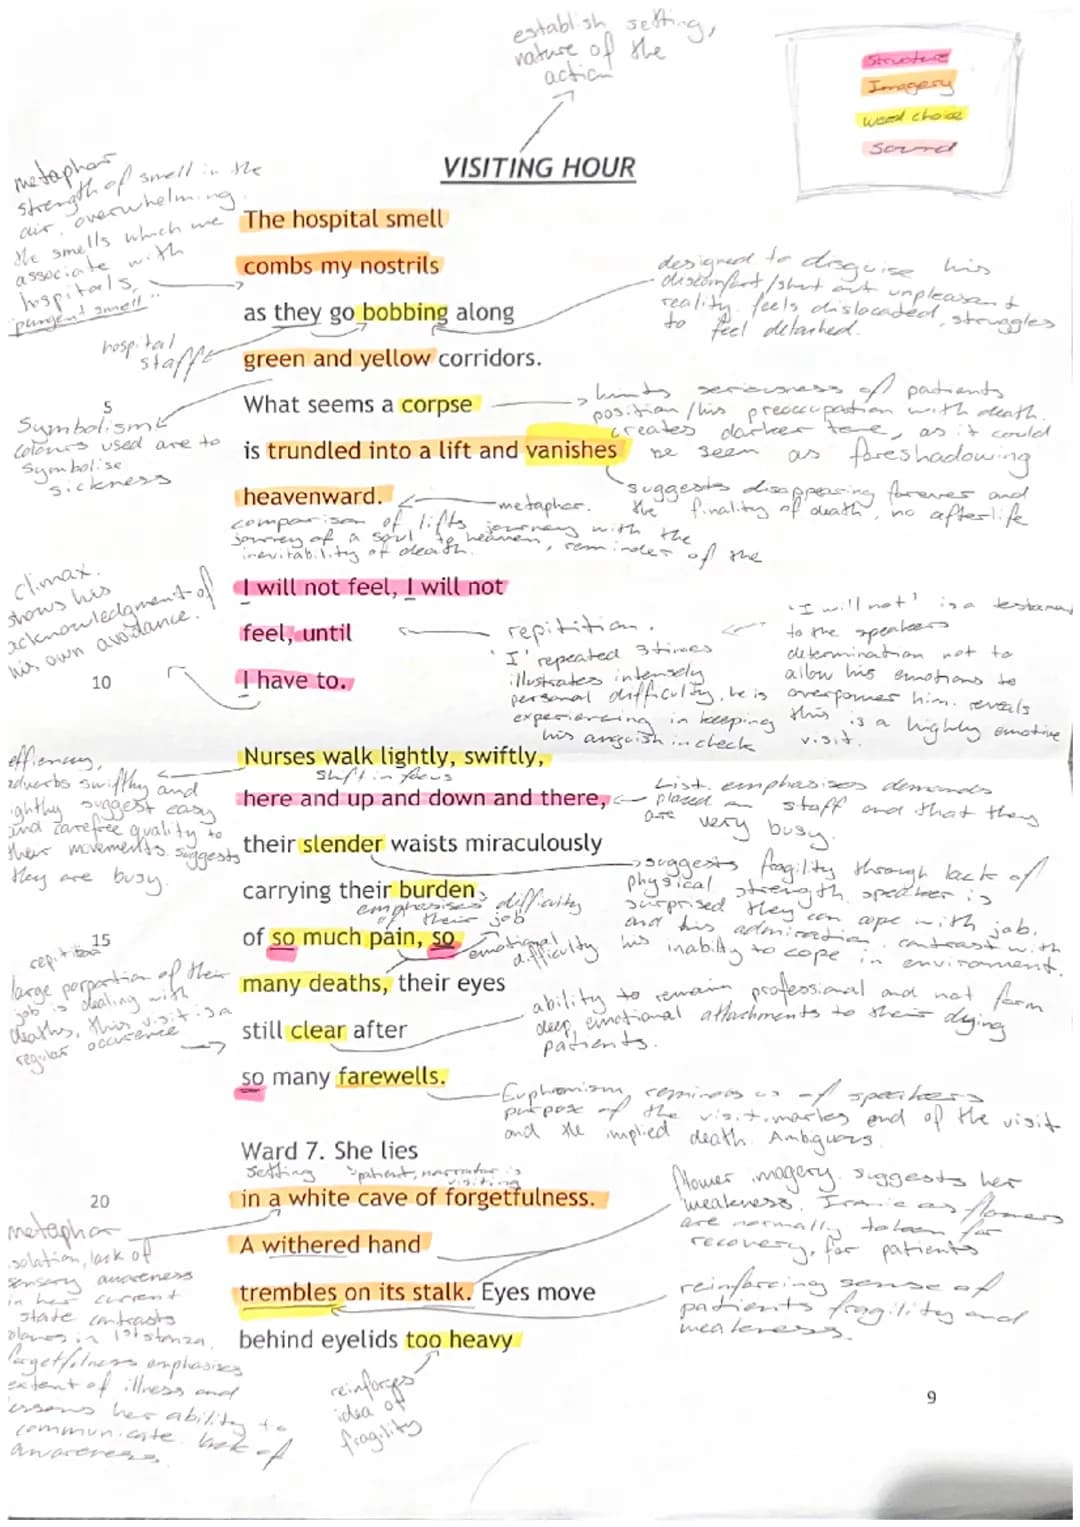 establish setting,
nature of the
action
Structure
Imagery
word choice
Sound
VISITING HOUR
metaphor
strength of smell in the
air, overwhelming
the smells which we
associate with
hospitals,
"pungent smell"
The hospital smell
combs my nostrils
as they go bobbing along
green and yellow corridors.
designed to disguise his
discomfort/shut out unpleasant
reality. feels dislocated, struggles
to feel detached.
hospital
staff
5
What seems a corpse
is trundled into a lift and vanishes
heavenward.
Symbolism
colours used are to
symbolise
sickness
hints seriousness of patients
position/his preoccupation with death.
creates darker tone, as it could
be seen as foreshadowing
suggests disappearing forever and
the finality of death, no afterlife
metaphor.
comparison of lifts journey with the
journey of a soul to heaven, reminder of the
inevitability of death.
climax.
shows his
acknowledgment of
his own avoidance.
I will not feel, I will not
feel, until
10
I have to.
repitition.
'I' repeated 3 times
illustrates intensely
personal difficulty. he is
experiencing in keeping
his anguish in check
'I will not' is a testamen
to the speakers
determination not to
allow his emotions to
overpower him. reveals
this is a highly emotive
visit.
efficiency,
adverbs swiftly and
ightly suggest easy
and carefree quality to
their movements. suggests
they are busy.
Nurses walk lightly, swiftly,
shift in focus
here and up and down and there,
their slender waists miraculously
carrying their burden
List. emphasises demands
placed on staff and that they
are very busy.
suggests fragility through lack of
physical strength. speaker is
surprised they can cope with job.
and his admiration. contrast with
his inability to cope in environment.
emphasises difficulty
of their job
15
of so much pain, so
emotional
difficulty
many deaths, their eyes
still clear after
so many farewells.
repitition
large porportion of their
job is dealing with
deaths, this visit is a
regular occurence
ability to remain professional and not form
deep, emotional attachments to their dying
patients.
Euphemism reminds us of speakers
purpose of the visit. marks end of the visit
and the implied death. Ambiguous.
Ward 7. She lies
setting
patient, narrator is
visiting
20
in a white cave of forgetfulness.
A withered hand
trembles on its stalk. Eyes move
behind eyelids too heavy
metaphor
isolation, lack of
sensory awareness
in her current
state contrasts
in 1st stanza.
forgetfulness emphasises
extent of illness and
lessens her ability to
communicate. lack of
awareness.
flower imagery. suggests her
weakness. Ironic as flowers
are normally taken for
recovery, for patients
reinforcing sense of
patients fragility and
weakness.
reinforces
idea of
fragility
9